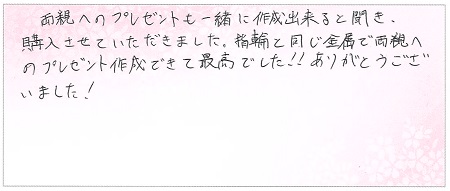 両親へのプレゼントも一緒に作成出来ると聞き、
購入させていただきました。指輪と同じ金属で両親へ
のプレゼント作成できて最高でした!!ありがとうござ
いました!